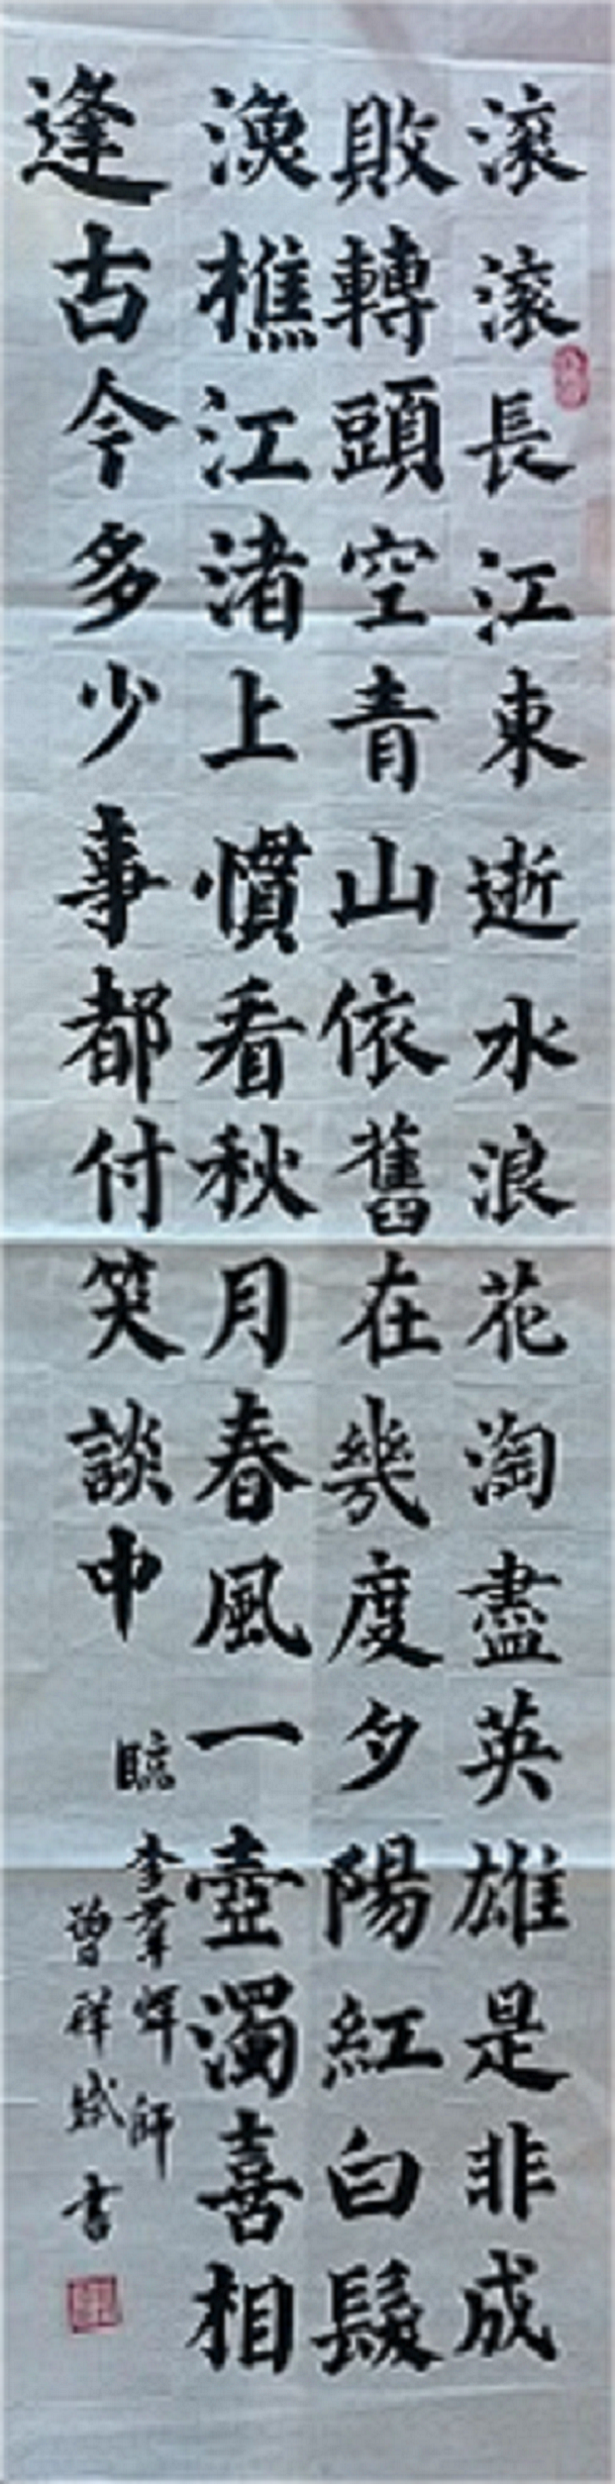 滾滾長江東逝水浪花淘盡英雄是非成
敗轉頭空青山依舊在幾度夕陽紅白髮
漁樵江渚上慣看秋月春風一壺濁喜相
逢古今多少事都付笑談中
臨
李羣輝師
曾祥斌書